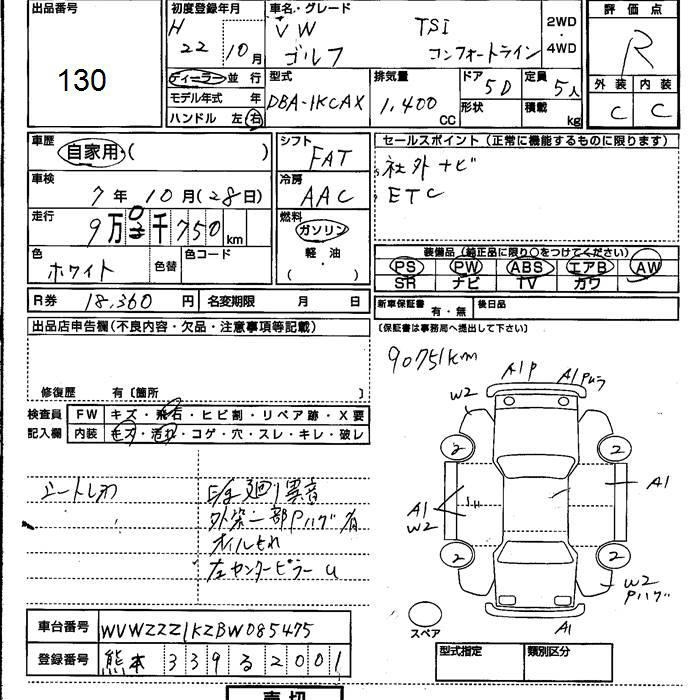 出品番号
130
初度登録年月
H 22 10月
車名・グレード
VW TSI
ゴルフ コンフォートライン
2WD
・
4WD
評価点
R
外装 内装
C C
ディーラー 並行
モデル年式 年
ハンドル 左 右
型式
DBA-1KCAX
排気量
1,400 CC
ドア 5D
形状
定員 5人
積載 kg
車歴
自家用・( )
車検
7年10月(28日)
走行
9万 0千750 km
色
ホワイト
色替
色コード
シフト
FAT
冷房
AAC
燃料
ガソリン
軽・油
( ・ )
セールスポイント (正常に機能するものに限ります)
社外ナビ
ETC
装備品 (純正品に限り○をつけてください)
PS PW ABS エアB AW
SR ナビ TV カワ
R券 18,360 円
名変期限 月 日
新車保証書
有・無
後日品
(保証書は事務局へ提出して下さい)
出品店申告欄(不良内容・欠品・注意事項等記載)
修復歴 有〔箇所 〕
検査員
記入欄
FW キズ・飛石・ヒビ割・リペア跡・X要
内装 キズ・汚れ・コゲ・穴・スレ・キレ・破レ
シートしわ
E/g廻り異音
外装一部Pハゲ有
オイルもれ
左センターピラーU
90751km
A1P
A1Pムラ
W2
2
2
A1
W2
A1
2
2
W2
Pハゲ
A1
スペア
車台番号 WVWZZZ1KZBW085475
登録番号 熊本 339 る 2001
型式指定
類別区分
売切